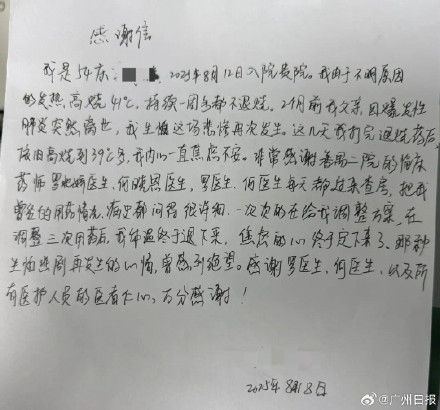 感谢信
我是54床 2025年8月12日入院贵院。我由于不明原因
的发热高烧41℃，持续一周多都不退烧。2个月前我父亲因爆发性
肺炎突然离世，我生怕这场悲情再次发生。这几天我打完退烧药后，
依旧高烧到39℃多，我内心一直焦虑不安。非常感谢番禺二院的临床
药师罗 医生、何晓思医生，罗医生、何医生每天都过来查房，把我
曾经的用药情况、病史都问得很详细，一次次的在给我调整方案，在
调整三次用药后，我体温终于退下来，焦急的心终于定下来了、那种
生怕悲剧再发生的心情，曾感到绝望。感谢罗医生、何医生、以及所
有医护人员的医者仁心，万分感谢！
2025年8月18日
@广州日报